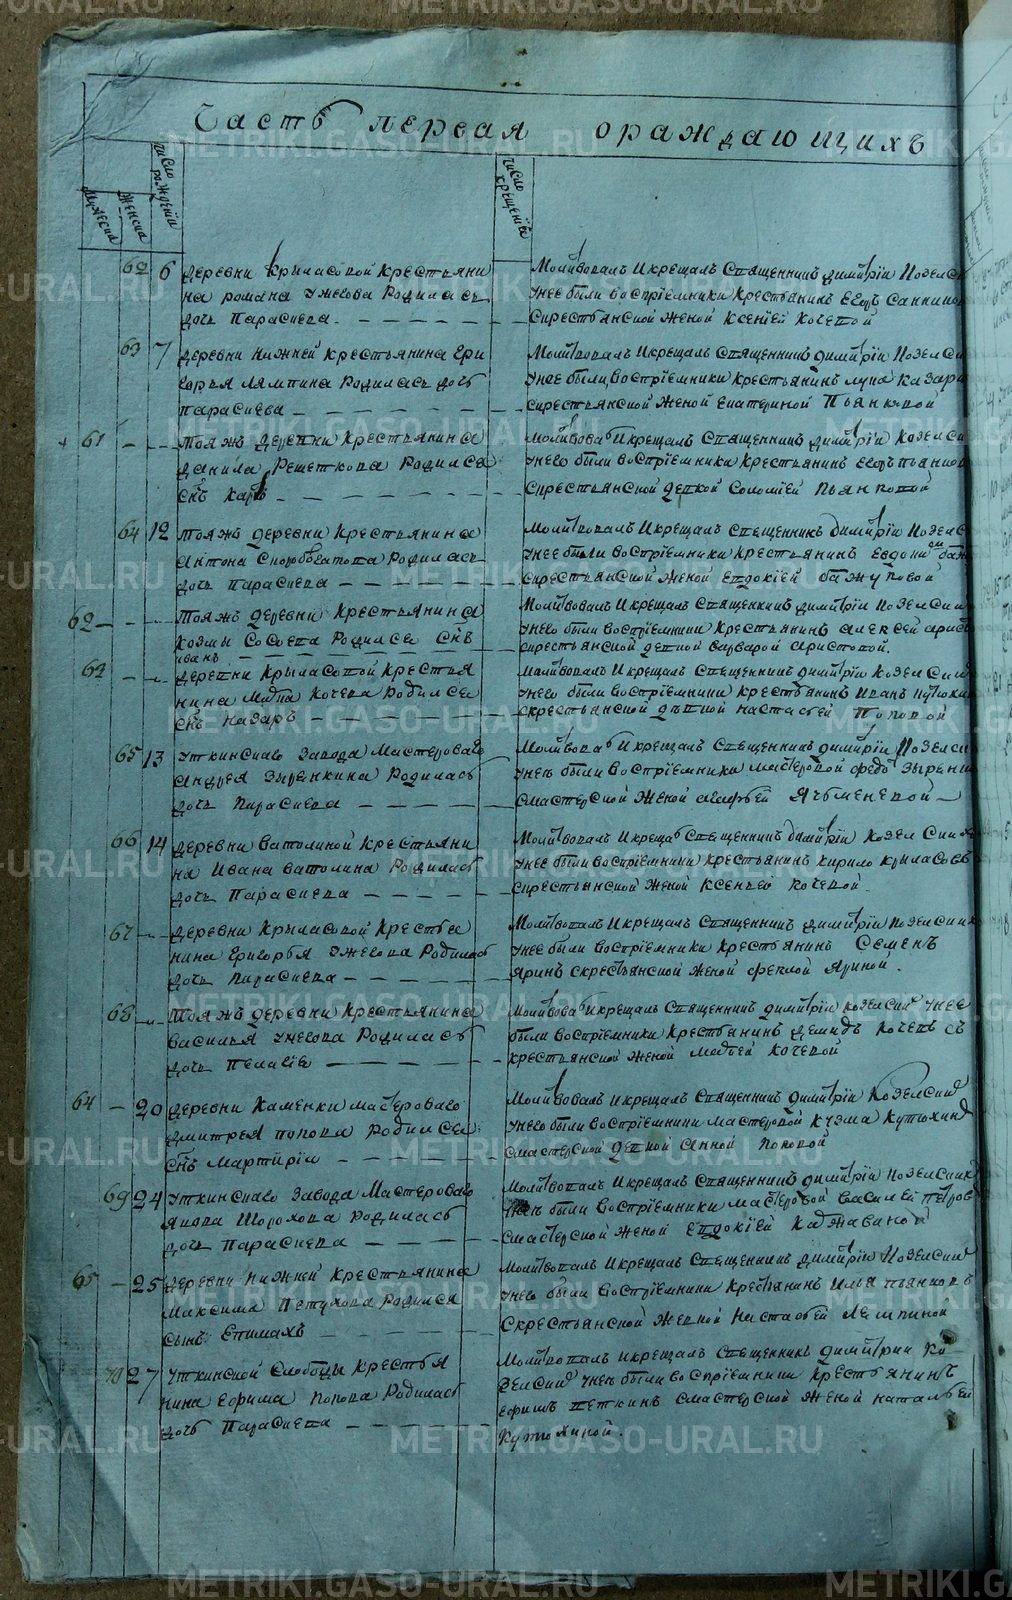 Часть первая ораждающихъ
Мужеска
Женска
число рождениі
число крещеніе
62 6 деревни Крыласовой Крестьяни
на романа Ужегова Родилась
дочь Параскева
Молитвовалъ Икрещалъ Священникъ димитріи Козелски
Унее были воспріемники Крестьянинъ Егоръ
Скрестьянской Женой Ксенией Кочевой
63 7 деревни нижней крестьянина Гри
горья Лямпина Родилась дочь
параскева
Молитвовалъ Икрещалъ Священникъ димитріи Козелски
Унее были воспріемники крестьянинъ лука
Скрестьянской Женой Екатериной Пьянковой
61 Тояжъ деревни Крестьянина
данила Решеткова Родился
Снъ Карпъ
Молитвова Икрещалъ Священникъ димитріи Козелски
Унего были воспріемники Крестьянинъ Егоръ пьянков
Скрестьянской девкой Соломией Пьянковой
64 12 Тояжъ деревни Крестьянина
Антона Скоробогатова Родилась
дочь Параскева
Молитвовалъ Икрещалъ Священникъ димитріи Козелс
Унее были воспріемники Крестьянинъ
Скрестьянской Женой Евдокией бажуковой
62 Тояжъ деревни Крестьянина
Козмы Сосоева Родился Снъ
иванъ
Молитвовалъ Икрещалъ Священникъ димитріи Козелски
Унего были воспріемники Крестьянинъ алексей
скрестьянской девкой варварой аристовой.
63 деревни Крыласовой Крестья
нина Кочева Родился
Снъ Назаръ
Молитвовалъ Икрещалъ Священникъ димитріи Козелски
Унего были воспріемники Крестьянинъ Иванъ
Скрестьянской девкой настасьей Поповой
65 13 Уткинскаго Завода Мастероваго
Андрея Зыренкина Родилась
дочь Параскева
Молитвова Икрещалъ Священникъ димитріи Козелски
Унее были воспріемники мастеровой федо Зыренки
Смастерской Женой Ячьменевой
66 14 деревни Ватолиной Крестьяни
на Ивана ватолина Родилась
дочь Параскева
Молитвовалъ Икреща Священникъ димитріи Козелски
Унее были воспріемники Крестьянинъ кирило крыласовъ
Скрестьянской Женой Ксеньей Кочевой.
67 деревни Крыласовой Крестья
нина Григорья Ужегова Родилась
дочь Параскева
Молитвовалъ Икрещалъ Священникъ димитріи Козелски
Унее были воспріемники Крестьянинъ Семенъ
Яринъ скрестьянской женой феклой Яриной.
68 Тояжъ деревни Крестьянина
василья Ужегова Родилась
дочь Пелагия
Молитвова Икрещалъ Священникъ димитріи козелский Унее
были воспріемники Крестьянинъ демидъ Кочевъ съ
крестьянской Женой Кочевой
64 20 деревни Каменки мастероваго
дмитрея попова Родился
Снъ Мартирій
Молитвовалъ Икрещалъ Священникъ димитріи Козелский
Унего были воспріемники Мастеровой Кузма Кутюхинъ
смастерской девкой анной поповой
69 24 Уткинскаго Завода Мастероваго
Якова Шорохова Родилась
дочь Параскева
Молитвовалъ Икрещалъ Священникъ димитріи Козелский
были воспріемники мастеровой василей петров
Смастерской Женой Евдокией
65 25 деревни нижней Крестьянина
Максима Петухова Родился
Сынъ Епимахъ
Молитвовалъ Икрещалъ Священникъ димитріи Козелский
Унего были воспріемники Крестьянинъ Илья пьянковъ
Скрестьянской женкой Настасьей Лямпиной
70 27 Уткинской Слободы крестья
нина Ефима Попова Родилась
дочь Параскева
Молитвовалъ Икрещалъ Священникъ димитрии Ко
зелский Унее были воспріемники Крестьянинъ
Ефимъ петкинъ Смастерской Женой натальей
Кутюхиной.
METRIKI.GASO-URAL.RU